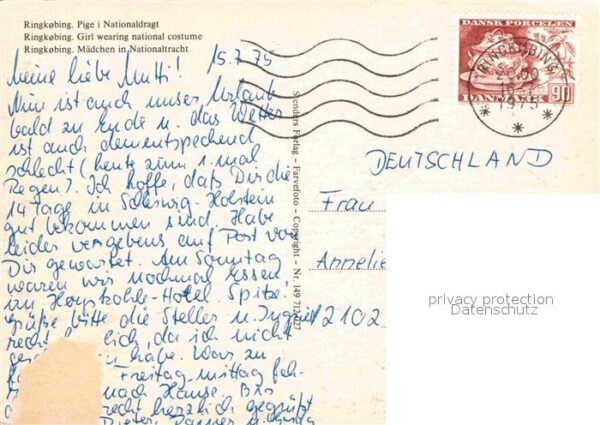 Ringkøbing. Pige i Nationaldragt
Ringkøbing. Girl wearing national costume
Ringkøbing. Mädchen in Nationaltracht
15.7.75
Meine liebe Mutti!
Nun ist auch unser Urlaub
bald zu Ende u. das Wetter
ist auch dementspechend
schlecht (heute zum 1. mal
Regen). Ich hoffe, daß Dir die
14 Tage in Schleswig-Holstein
gut bekommen sind. Habe
leider vergebens auf Post von
Dir gewartet. Am Sonntag
waren wir nochmal essen,
im Hotel. Spitze
grüße bitte die Steller u. Ingrid
lich, da ich nicht
habe. Wars zu
Freitag mittag fah-
nach Hause. Bis
recht herzlich gegrüßt
Stenders Forlag - Farvefoto - Copyright - Nr. 149
DANSK PORCELÆN
DANMARK 90
RINGKØBING
1975
DEUTSCHLAND
Frau
Annelie
2102
privacy protection
Datenschutz